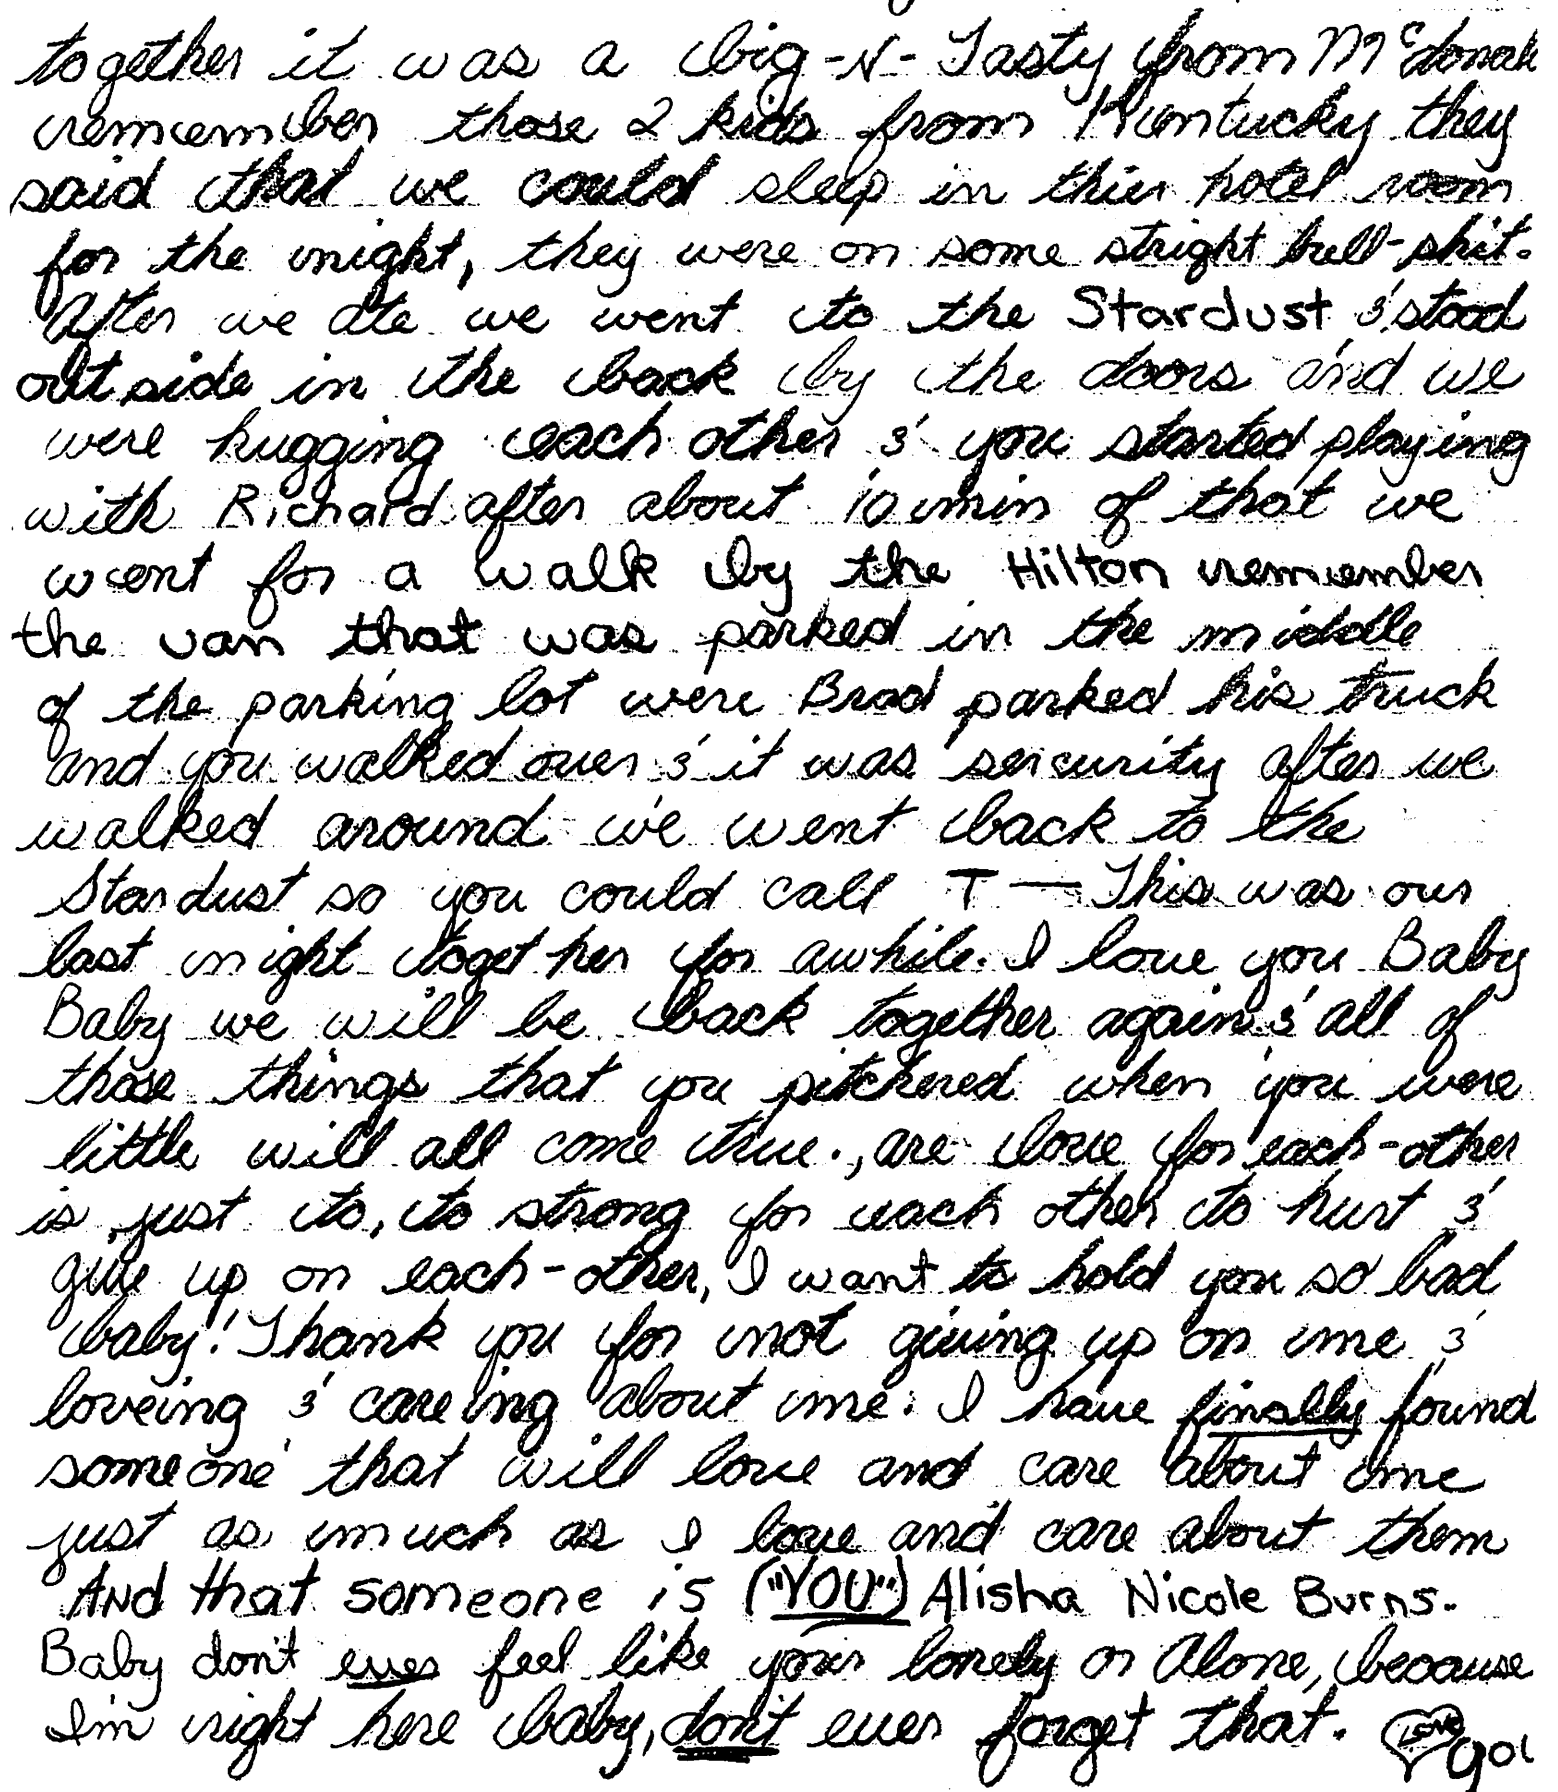 together it was a big-N-Tasty from McDonald
rememember those 2 kids from Kuntucky they
said that we could sleep in thier hotel room
for the night, they were on some stright bull-shit.
After we ate we went to the Stardust & stood
outside in the back by the doors and we
were hugging each other & you started playing
with Richard after about 10 min of that we
went for a walk by the Hilton rememember
the van that was parked in the middle
of the parking lot were Brad parked his truck
and you walked over & it was sercurity after we
walked around we went back to the
Stardust so you could call T — This was our
last night together for awhile. I love you Baby
Baby we will be back together again & all of
those things that you pitchered when you were
little will all come true., are love for each-other
is just to, to strong for each other to hurt &
give up on each-other, I want to hold you so bad
baby! Thank you for not giving up on me &
loveing & careing about me. I have finally found
someone that will love and care about me
just as much as I love and care about them
And that someone is ("YOU") Alisha Nicole Burns.
Baby don't ever feel like your lonely or Alone, because
I'm right here baby, don't ever forget that. LOVE you